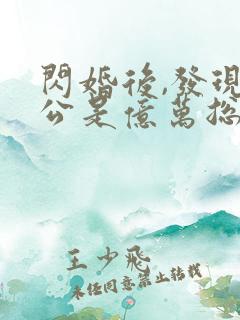 閃婚後,發現
公是億萬總
王少飛
未經同意禁止轉載